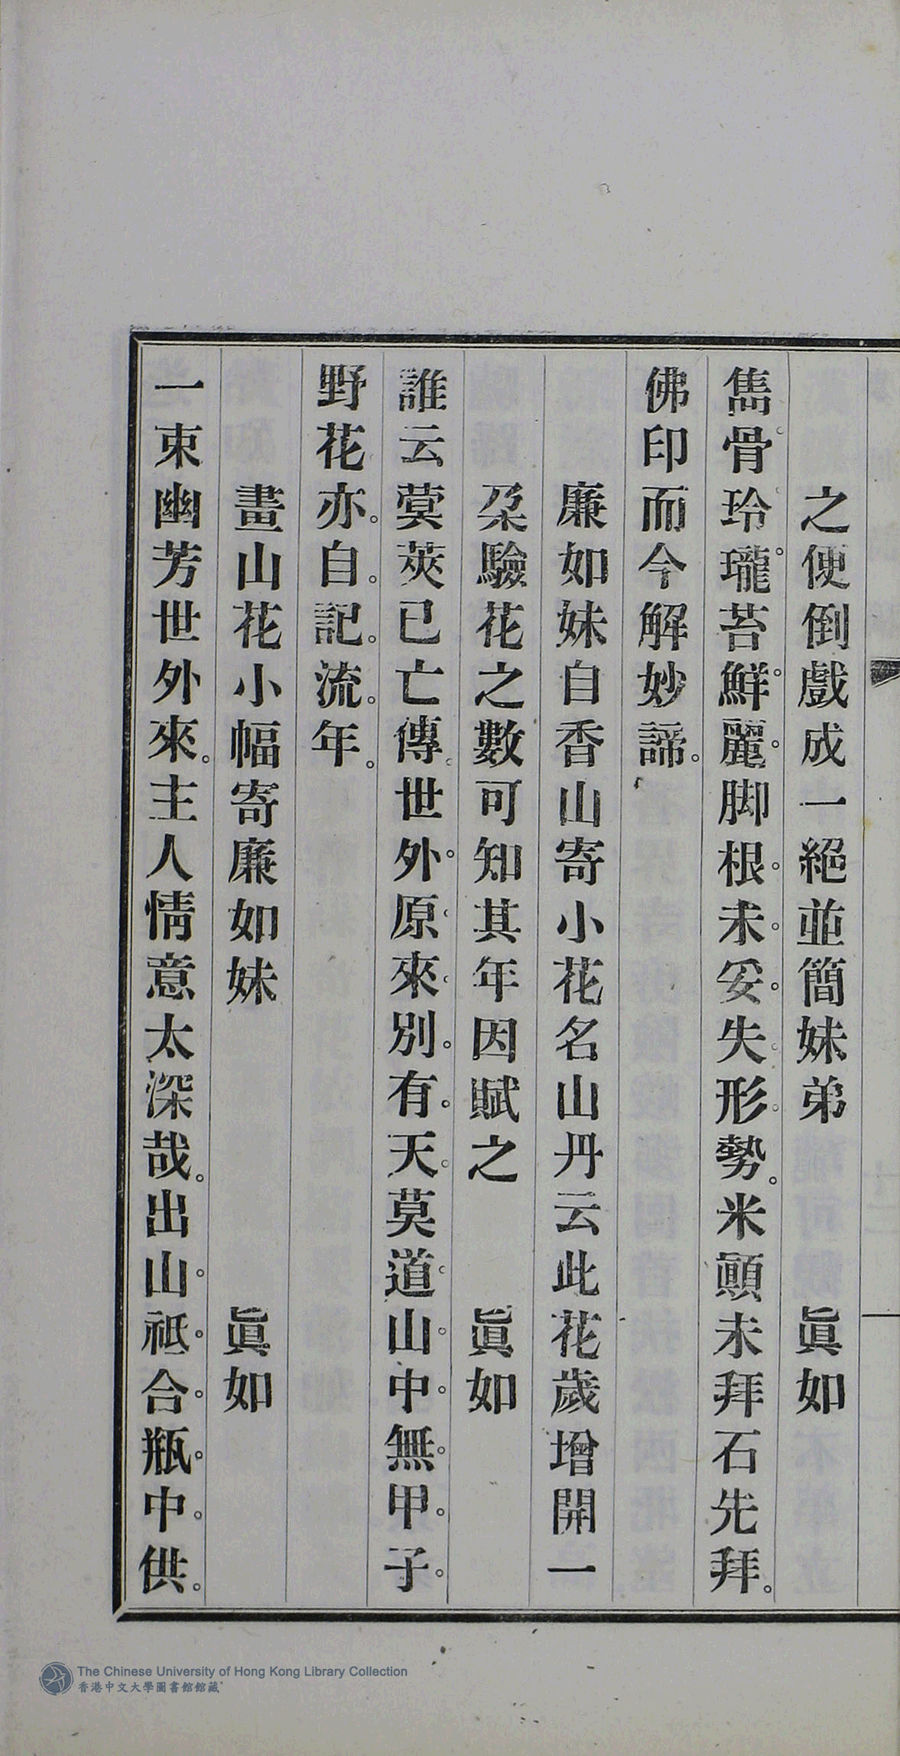 之便倒戲成一絕並簡妹弟 眞如
雋骨玲瓏苔鮮麗。脚根未妥失形勢。米顚未拜石先拜。
佛印而今解妙諦。
廉如妹自香山寄小花名山丹云此花歲增開一
朶驗花之數可知其年因賦之 眞如
誰云蓂莢已亡傳。世外原來別有天。莫道山中無甲子。
野花亦自記流年。
畫山花小幅寄廉如妹 眞如
一束幽芳世外來。主人情意太深哉。出山祗合瓶中供。
The Chinese University of Hong Kong Library Collection
香港中文大學圖書館館藏